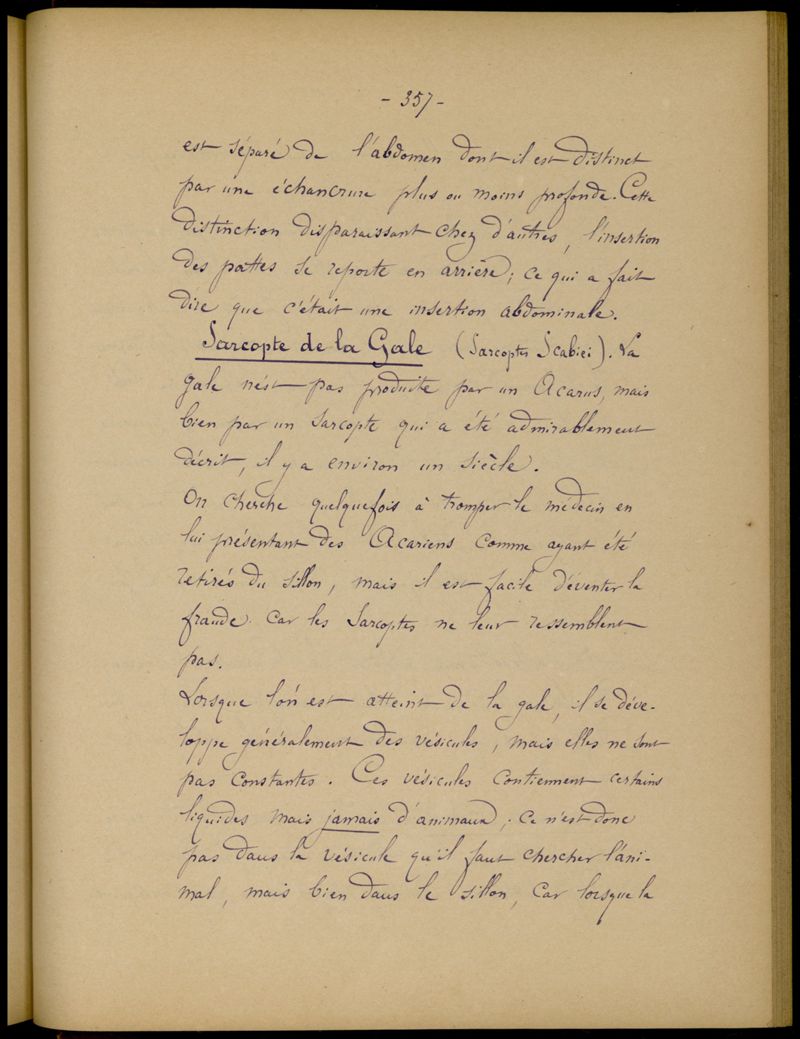 - 357 -
est séparé de l'abdomen dont il est distinct
par une échancrure plus ou moins profonde. Cette
distinction disparaissant chez d'autres, l'insertion
des pattes se reporte en arrière; ce qui a fait
dire que c'était une insertion abdominale.
Sarcopte de la Gale (Sarcoptes Scabiei). La
gale n'est pas produite par un Acarus, mais
bien par un Sarcopte qui a été admirablement
décrit, il y a environ un siècle.
On cherche quelquefois à tromper le médecin en
lui présentant des Acariens comme ayant été
retirés du sillon, mais il est facile d'éventer la
fraude. Car les Sarcoptes ne leur ressemblent
pas.
Lorsque l'on est atteint de la gale, il se déve-
loppe généralement des vésicules, mais elles ne sont
pas constantes. Ces vésicules contiennent certains
liquides mais jamais d'animaux; ce n'est donc
pas dans la vésicule qu'il faut chercher l'ani-
mal, mais bien dans le sillon, car lorsque la